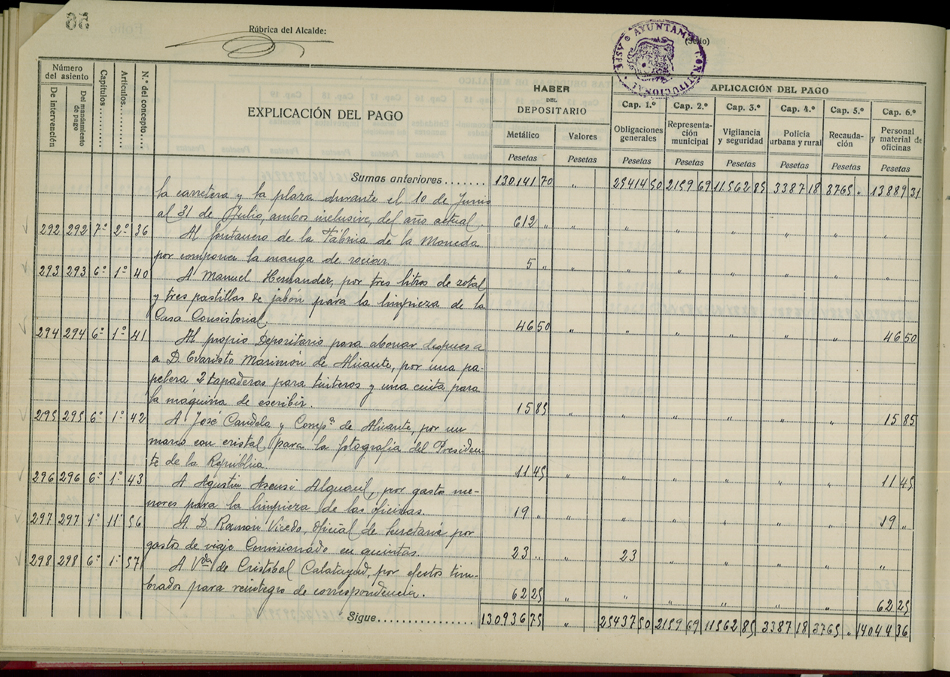 56
Rúbrica del Alcalde:
(Folio)
AYUNTAMTO CONSTITUCIONAL ASPE
Número del asiento
De intervención
Del mandamiento de pago
Capítulos
Artículos
N.º del concepto
EXPLICACIÓN DEL PAGO
HABER DEL DEPOSITARIO
Metálico
Valores
Pesetas Pesetas
APLICACIÓN DEL PAGO
Cap. 1.º Cap. 2.º Cap. 3.º Cap. 4.º Cap. 5.º Cap. 6.º
Obligaciones generales
Representación municipal
Vigilancia y seguridad
Policía urbana y rural
Recaudación
Personal y material de oficinas
Pesetas Pesetas Pesetas Pesetas Pesetas Pesetas
Sumas anteriores....... 130141 70 " 25414 50 2159 69 11562 85 3387 18 3765 " 13889 31
la carretera y la plaza durante el 10 de Junio
al 31 de Julio, ambos inclusive, del año actual. 612 " " " " " " " "
292 292 7º 2º 36 Al fontanero de la Fábrica de la Moneda
por componer la manga de rociar. 5 " " " " " " " "
293 293 6º 1º 40 A Manuel Hernandez, por tres litros de zotal
y tres pastillas de jabón para la limpieza de la
Casa Consistorial 46 50 " " " " " " 46 50
294 294 6º 1º 41 Al propio Depositario para abonar despues a
a D. Evaristo Marimón de Alicante, por una pa-
pelera 2 tapaderas para tinteros y una cinta para
la máquina de escribir. 15 85 " " " " " " 15 85
295 295 6º 1º 42 A José Candela y Compª. de Alicante, por un
marco con cristal para la fotografia del Presiden-
te de la República. 11 45 " " " " " " 11 45
296 296 6º 1º 43 A Agustin Asensi Alguacil, por gasto me-
nores para la limpieza de las oficinas. 19 " " " " " " " 19 "
297 297 1º 11º 56 A D. Ramon Vicedo, Oficial de Secretaria por
gastos de viaje Comisionado en quintas. 23 " " 23 " " " " "
298 298 6º 1º 57 A Vda de Cristóbal Calatayud, por efectos tim-
brados para reintegro de correspondencia. 62 25 " " " " " " 62 25
Sigue................ 130936 75 " 25437 50 2159 69 11562 85 3387 18 3765 " 14044 36